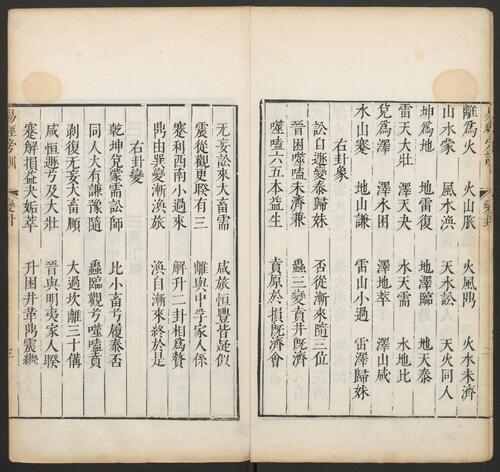 離爲火　火山旅　火風鼎　火水未濟
山水蒙　風水渙　天水訟　天火同人
坤爲地　地雷復　地澤臨　地天泰
雷天大壯　澤天夬　水天需　水地比
兌爲澤　澤水困　澤地萃　澤山咸
水山蹇　地山謙　雷山小過　雷澤歸妹
右卦象
訟自遯變泰歸妹　否從漸來隨三位
晉困噬嗑未濟兼　蠱三變賁井旣濟
噬嗑六五本益生　賁原於損旣濟會
无妄訟來大畜需　咸旅恒豐皆疑似
震從觀更睽有三　離與中孚家人係
蹇利西南小過來　解升二卦相爲贅
鼎由巽變漸渙旅　渙自漸來終於是
右卦變
乾坤屯蒙需訟師　比小畜兮履泰否
同人大有謙豫隨　蠱臨觀兮噬嗑賁
剥復无妄大畜頤　大過坎離三十備
咸恒遯兮及大壯　晉與明夷家人睽
蹇解損益夬姤萃　升困井革鼎震繼
三